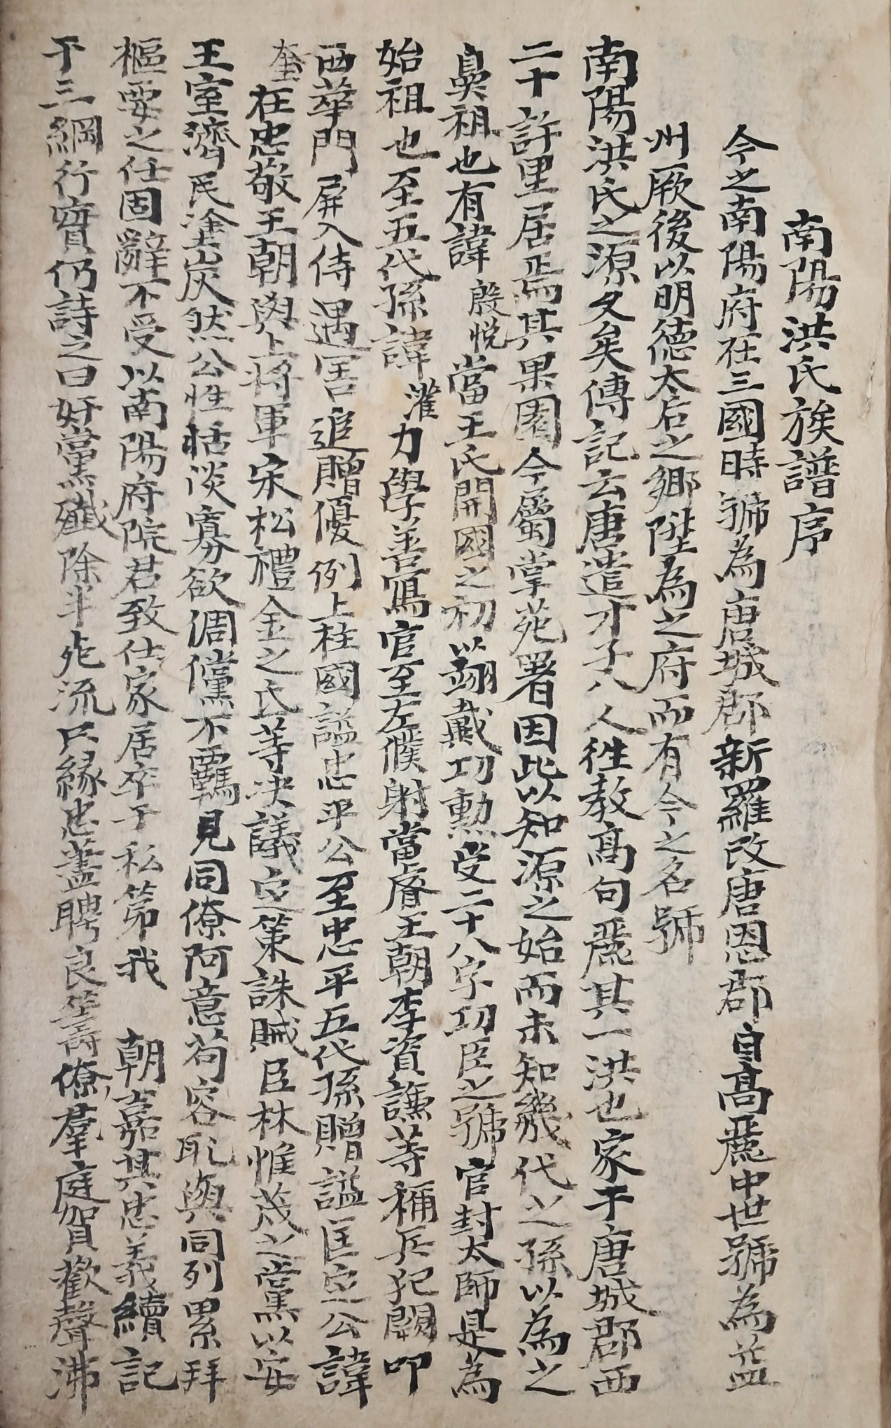 南陽洪氏族譜序
今之南陽府在三國時號為唐城郡新羅改唐恩郡自高麗中世號為益
州厥後以明德太后之鄉陞為之府而有今之名號
南陽洪氏之源久矣傳記云唐遣才子八人徃教高句麗其一洪也家于唐城郡西
二十許里居焉其果園今屬掌苑署因此以知源之始而未知幾代之孫以為之
鼻祖也有諱殷悅當王氏開國之初以翊戴功勳受二十八字功臣之號官封太師是為
始祖也至五代孫諱灌力學善寫官至左僕射當睿王朝李資謙等稱兵犯闕叩
西華門屏入侍遇害追贈優例上柱國謚忠平公至忠平五代孫贈謚匡定公諱
奎在忠敬王朝與上將軍宋松禮金之氏等決議定策誅賊臣林惟茂之黨以安
王室濟民塗炭然公性恬淡寡欲倜儻不羈見同僚阿意苟容恥與同列累拜
樞要之任固辭不受以南陽府院君致仕家居卒于私第我 朝嘉其忠義續記
于三綱行實仍詩之曰奸黨殲除半死流只緣忠藎聘良籌僚羣庭賀歡聲沸